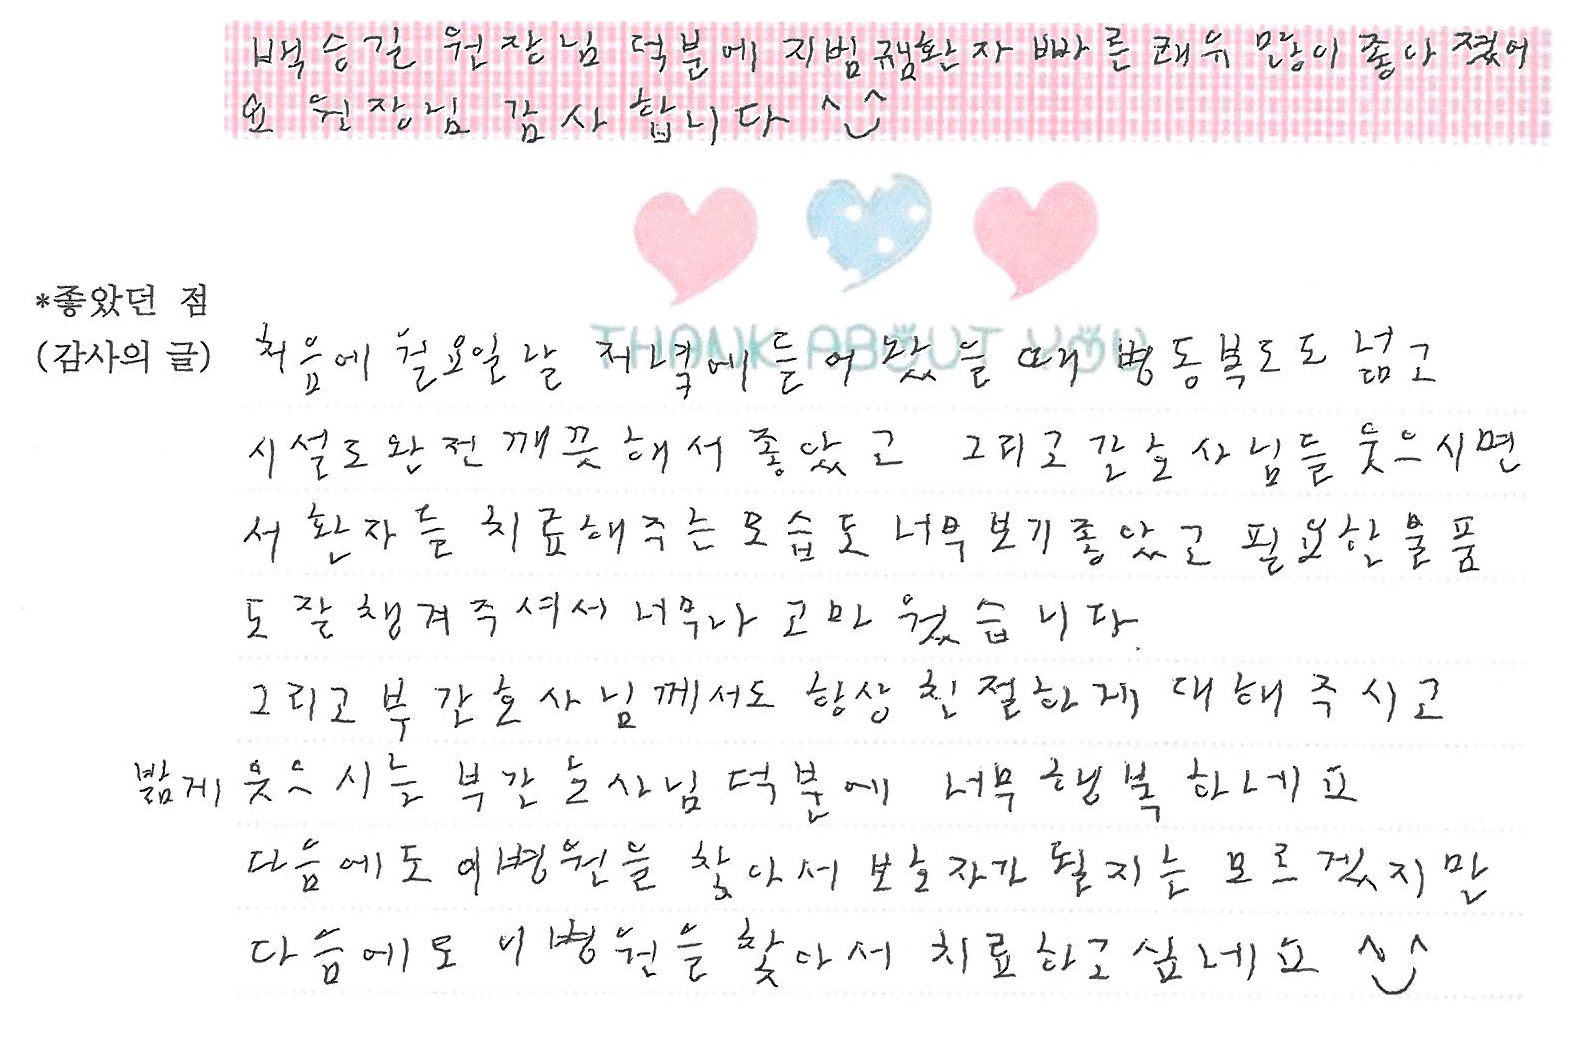 백승길 원장님 덕분에 지범규햄환자 빠른쾌유 많이 좋아 졌어
요 원장님 감사합니다 ^^
THANK ABOUT YOU
*좋았던 점
(감사의 글) 처음에 월요일날 저녁에 들어 왔을 때 병동복도도 넓고
시설도 완전 깨끗해서 좋았고 그리고 간호사님들 웃으시면
서 환자들 치료해주는 모습도 너무 보기좋았고 필요한물품
도 잘 챙겨주셔서 너무나 고마웠습니다.
그리고 부간호사님께서도 항상 친절하게 대해주시고
밝게 웃으시는 부간호사님 덕분에 너무 행복하네요
다음에도 이병원을 찾아서 보호자가 될지는 모르겠지만
다음에도 이병원을 찾아서 치료하고 싶네요 ^^